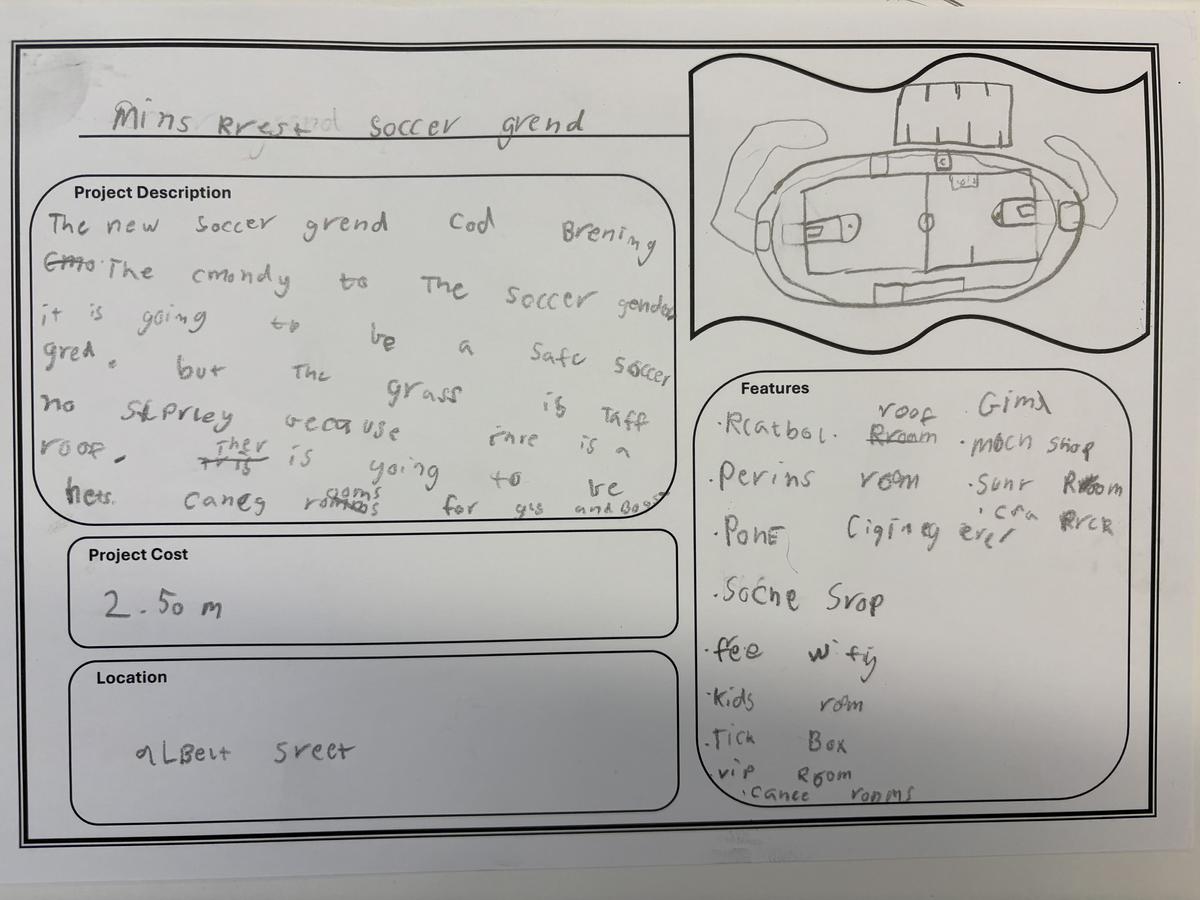 Mins Rrest soccer grend
Project Description
The new soccer grend cod Brening
The cmondy to The soccer
it is going to be a safe soccer
gred. but The grass is Taff
no SLPrley because thre is a
roof. Ther is going to be
hets. Caneg rooms for gis and Boos
Project Cost
2.50 m
Location
aLBert Sreet
Features
.Rcatbol. roof
.Perins room
.PonE Cigineg erer
.Socne Srop
.fee wify
.Kids rom
.Tick Box
.vip Room
.canee ronms
. Gima
.moch shop
.Sunr Room
.Cra Rrck
C